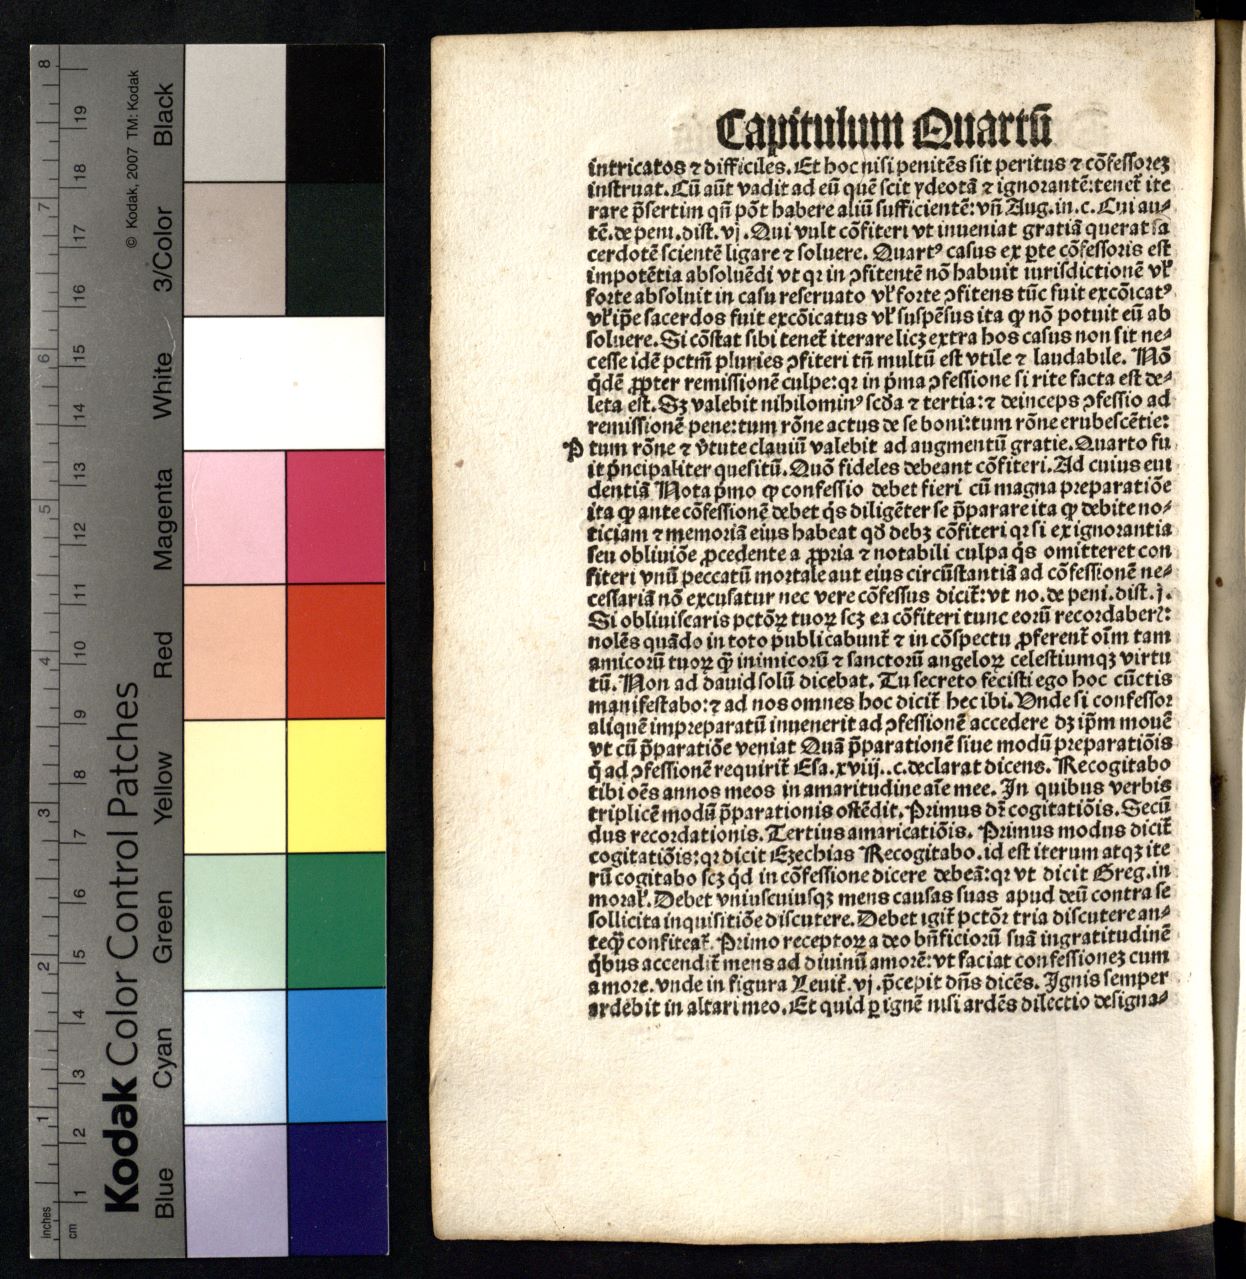 © Kodak, 2007 TM: Kodak
Kodak Color Control Patches
Blue Cyan Green Yellow Red Magenta White 3/Color Black
inches 1 2 3 4 5 6 7 8
cm 1 2 3 4 5 6 7 8 9 10 11 12 13 14 15 16 17 18 19
Capitulum Quartū
intricatos ⁊ difficiles. Et hoc nisi penitēs sit peritus ⁊ cōfessoreꝫ
instruat. Cū aūt vadit ad eū quē scit ydeotā ⁊ ignorantē: tenet̄ ite
rare p̄sertim qn̄ pōt habere aliū sufficientē: vn̄ Aug. in. c. Cui au⸗
tē. de peni. dist. vj. Qui vult cōfiteri vt inueniat gratiā querat sa
cerdotē scientē ligare ⁊ soluere. Quartꝰ casus ex ꝑte cōfessoris est
impotētia absoluēdi vt qꝛ in ꝯfitentē nō habuit iurisdictionē vl̓
forte absoluit in casu reseruato vl̓ forte ꝯfitens tūc fuit excōicatꝰ
vl̓ ip̄e sacerdos fuit excōicatus vl̓ suspēsus ita ꝙ nō potuit eū ab
soluere. Si cōstat sibi tenet̄ iterare licꝫ extra hos casus non sit ne⸗
cesse idē pctm̄ pluries ꝯfiteri tn̄ multū est vtile ⁊ laudabile. Nō
q̇dē ꝓpter remissionē culpe: qꝛ in p̄ma ꝯfessione si rite facta est de⸗
leta est. Sꝫ valebit nihilominꝰ scḋa ⁊ tertia: ⁊ deinceps ꝯfessio ad
remissionē pene: tum rōne actus de se boni: tum rōne erubescētie:
P tum rōne ⁊ v̓tute clauiū valebit ad augmentū gratie. Quarto fu
it p̄ncipaliter quesitū. Quō fideles debeant cōfiteri. Ad cuius eui
dentiā Nota p̄mo ꝙ confessio debet fieri cū magna preparatiōe
ita ꝙ ante cōfessionē debet q̇s diligēter se p̄parare ita ꝙ debite no⸗
ticiam ⁊ memoriā eius habeat qḋ debꝫ cōfiteri qꝛ si ex ignorantia
seu obliuiōe ꝓcedente a ꝓpria ⁊ notabili culpa q̇s omitteret con
fiteri vnū peccatū mortale aut eius circūstantiā ad cōfessionē ne⸗
cessariā nō excusatur nec vere cōfessus dicit̄: vt no. de peni. dist. j.
Si obliuiscaris pctōꝝ tuoꝝ scꝫ ea cōfiteri tunc eorū recordaber̄:
nolēs quādo in toto publicabunt̄ ⁊ in cōspectu ꝓferent̄ oīm tam
amicorū tuoꝝ qͣ̄ inimicorū ⁊ sanctorū angeloꝝ celestiumqꝫ virtu
tū. Non ad dauid solū dicebat. Tu secreto fecisti ego hoc cūctis
manifestabo: ⁊ ad nos omnes hoc dicit̄ hec ibi. Vnde si confessor
aliquē impreparatū inuenerit ad ꝯfessionē accedere dꝫ ip̄m mouē
vt cū p̄paratiōe veniat Quā p̄parationē siue modū preparatiōis
q̄ ad ꝯfessionē requirit̄ Esa. xviij.. c. declarat dicens. Recogitabo
tibi oēs annos meos in amaritudine aīe mee. In quibus verbis
triplicē modū p̄parationis ostēdit. Primus dr̄ cogitatiōis. Secū
dus recordationis. Tertius amaricatiōis. Primus modus dicit̄
cogitatiōis: qꝛ dicit Ezechias Recogitabo. id est iterum atqꝫ ite
rū cogitabo scꝫ q̇d in cōfessione dicere debeā: qꝛ vt dicit Greg. in
moral̓. Debet vniuscuiusqꝫ mens causas suas apud deū contra se
sollicita inquisitiōe discutere. Debet igit̄ pctōꝛ tria discutere an⸗
teqͣ̄ confiteat̄. Primo receptoꝝ a deo bn̄ficiorū suā ingratitudinē
q̇bus accendit̄ mens ad diuinū amorē: vt faciat confessioneꝫ cum
amore. vnde in figura Leuit̄. vj. p̄cepit dn̄s dicēs. Ignis semper
ardebit in altari meo. Et quid ꝑ ignē nisi ardēs dilectio designa⸗